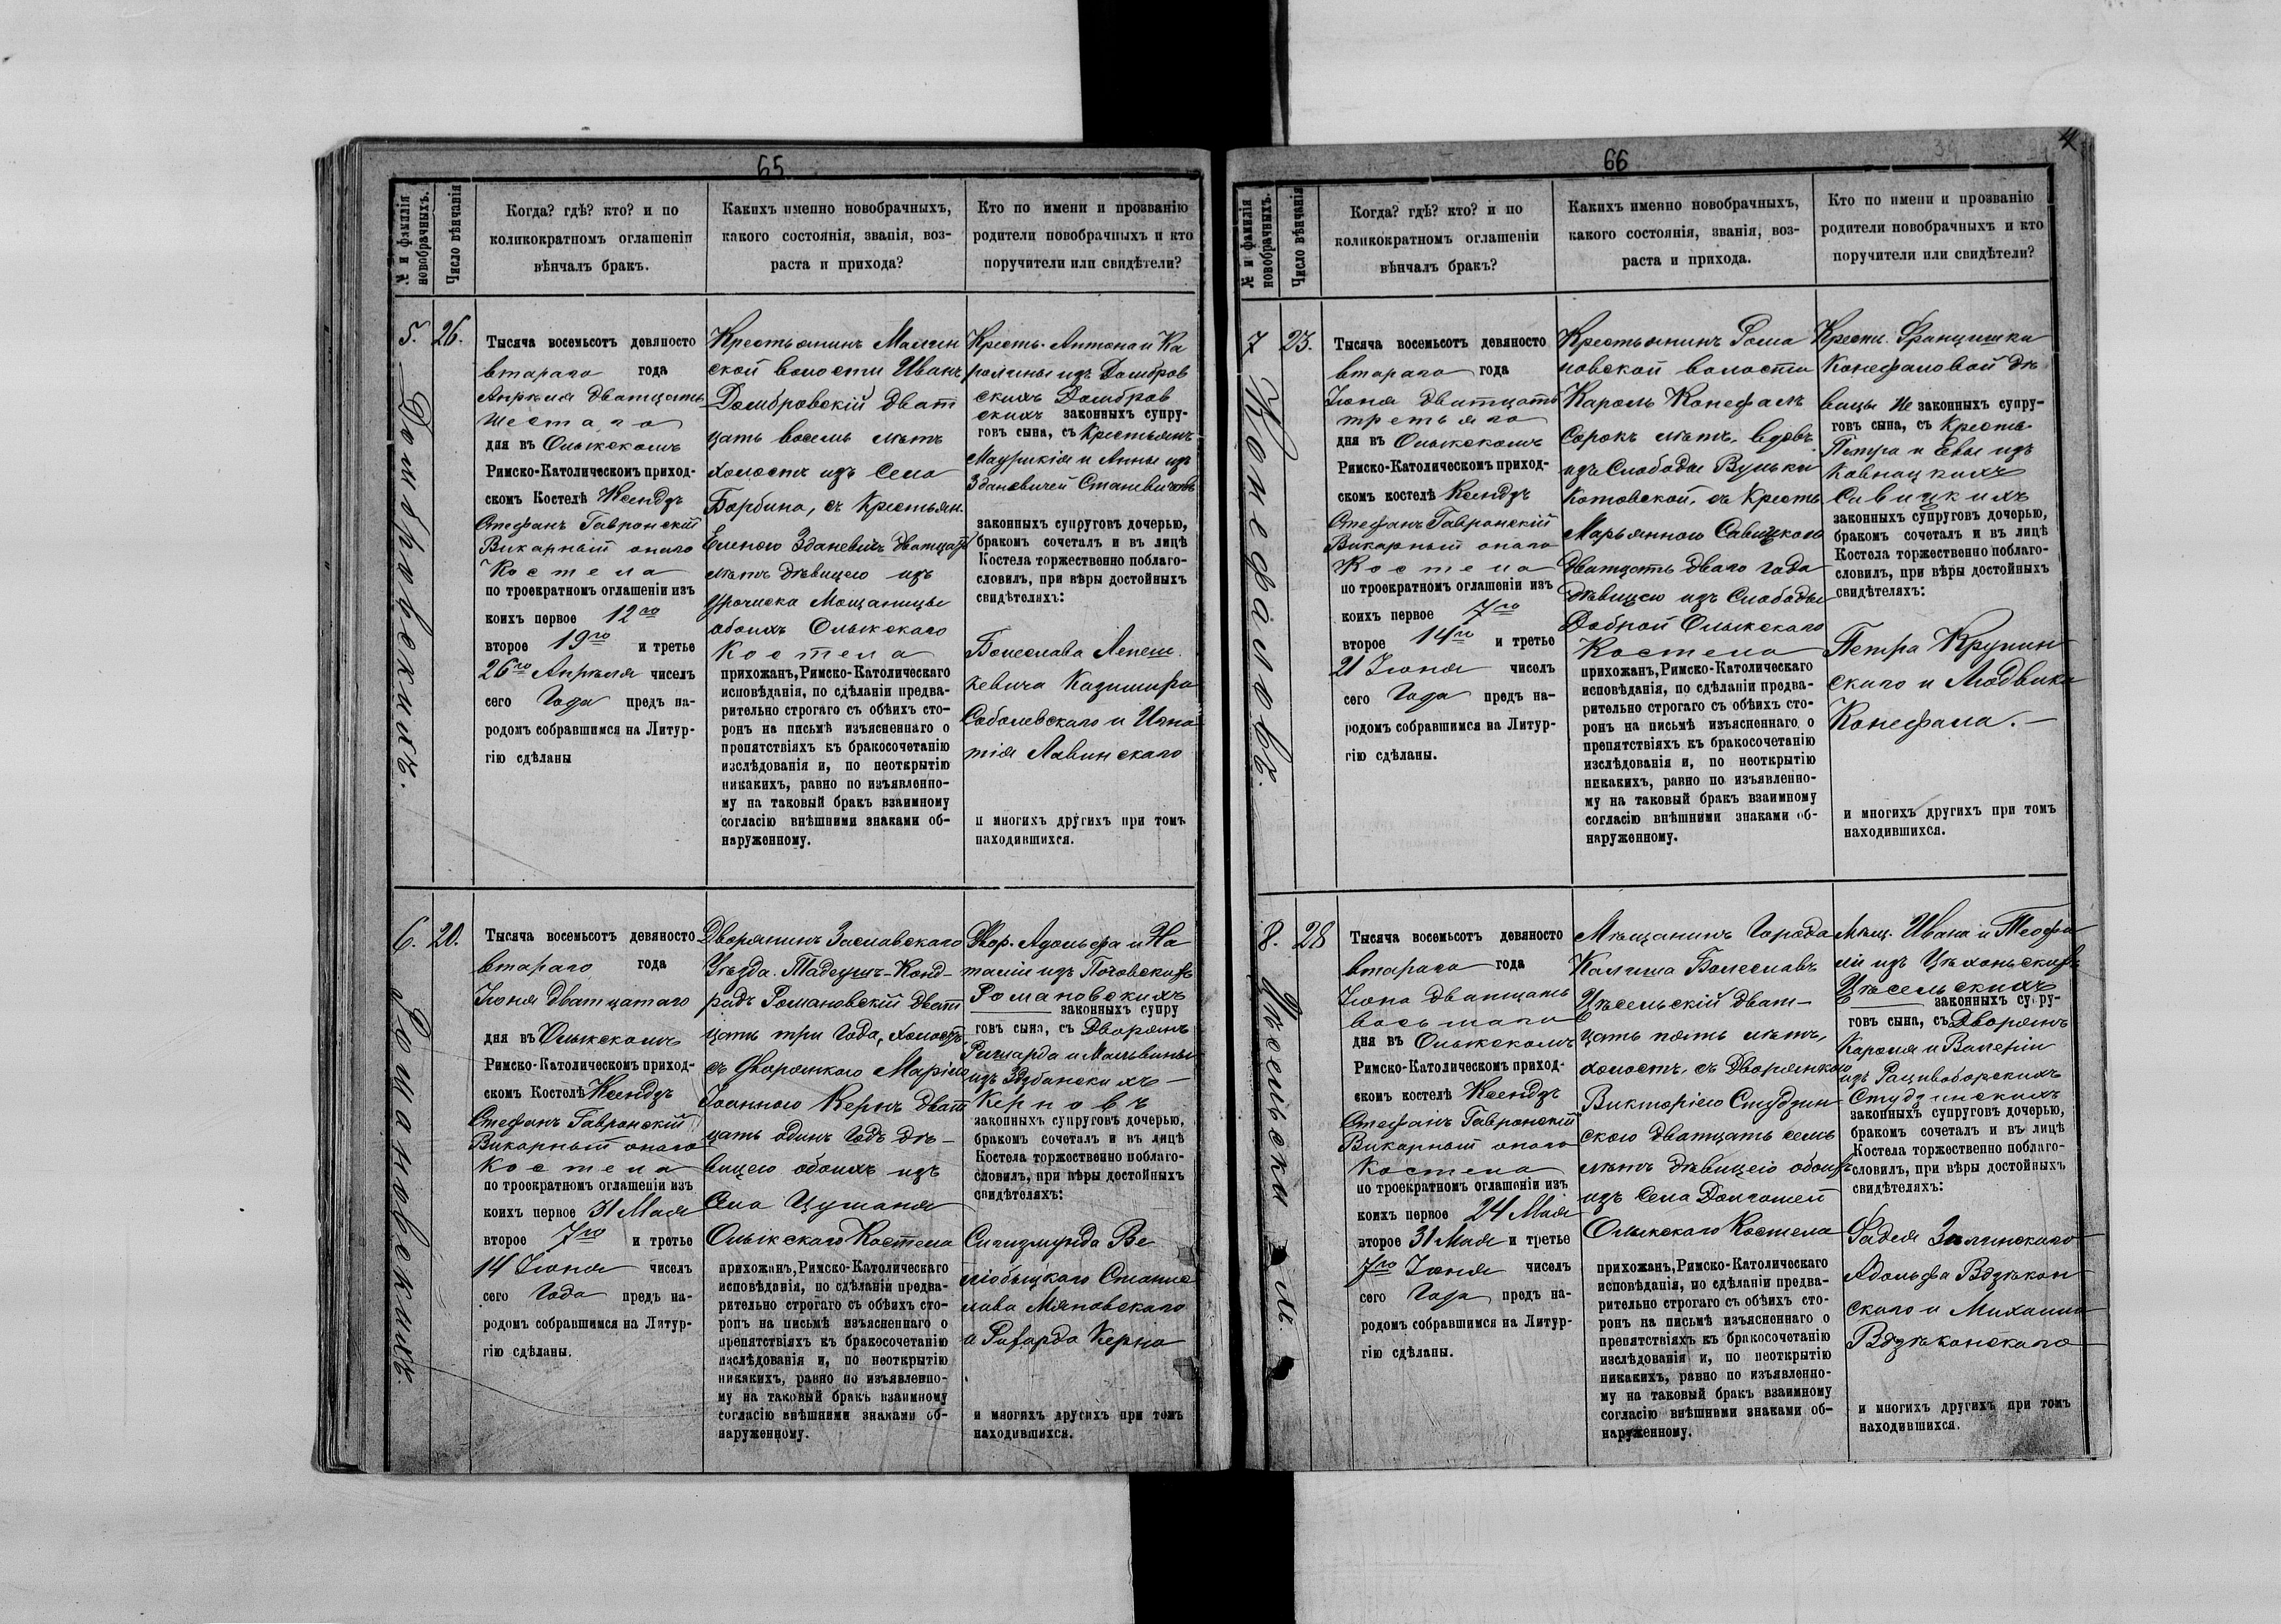 65
№ и фамилія новобрачныхъ.
Число вѣнчанія
Когда? гдѣ? кто? и по
коликократномъ оглашеніи
вѣнчалъ бракъ.
Какихъ именно новобрачныхъ,
какого состоянія, званія, воз-
раста и прихода?
Кто по имени и прозванію
родители новобрачныхъ и кто
поручители или свидѣтели?
5. Домбровскихъ.
26.
Тысяча восемьсотъ девяносто
втораго года
Апрѣля дватцать
шестаго
дня въ Олыкскомъ
Римско-Католическомъ приход-
скомъ Костелѣ Ксендзъ
Стефанъ Гавронскій
Викарный онаго
Костела
по троекратномъ оглашеніи изъ
коихъ первое 12го
второе 19го и третье
26го Апрѣля чиселъ
сего Года предъ на-
родомъ собравшимся на Литур-
гію сдѣланы
Крестьянинъ Малин
ской волости Иванъ
Домбровскій двят
цать восемь лѣтъ
холостъ изъ Села
Борбина, съ Крестьян.
Еленою Зданевичъ двятцать
лѣтъ дѣвицею изъ
Урочиска Мощаницы
обоихъ Олыкскаго
Костела
прихожанъ, Римско-Католическаго
исповѣданія, по сдѣланіи предва-
рительно строгаго съ обѣихъ сто-
ронъ на письмѣ изъясненнаго о
препятствіяхъ къ бракосочетанію
изслѣдованія и, по неоткрытію
никакихъ, равно по изъявленно-
му на таковый бракъ взаимному
согласію внѣшними знаками об-
наруженному.
Кресть. Антона и Ка
ролины изъ Домбров
скихъ Домбров
скихъ законныхъ супру-
говъ сына, съ Крестьянъ
Маурикія и Анны изъ
Зданевичей Станевичовъ
законныхъ супруговъ дочерью,
бракомъ сочеталъ и въ лицѣ
Костела торжественно поблаго-
словилъ, при вѣры достойныхъ
свидѣтеляхъ:
Болеслава Лепеш.
кевича Казимира
Соболевскаго и Игна
тія Лавинскаго
и многихъ другихъ при томъ
находившихся.
6. Романовскихъ.
20.
Тысяча восемьсотъ девяносто
втораго года
Іюня двятцатаго
дня въ Олыкскомъ
Римско-Католическомъ приход-
скомъ Костелѣ Ксендзъ
Стефанъ Гавронскій
Викарный онаго
Костела
по троекратномъ оглашеніи изъ
коихъ первое 31 Мая
второе 7го и третье
14 Іюня чиселъ
сего Года предъ на-
родомъ собравшимся на Литур-
гію сдѣланы.
Дворянинъ Заславскаго
Уѣзда. Тадеушъ-Конд-
радъ Романовскій двят
цать три года, холостъ,
съ дворянкою Маріею
Іоанною Кернъ двят
цать одинъ годъ дѣ-
вицею обоихъ изъ
Села Цуманя
Олыкскаго Костела
прихожанъ, Римско-Католическаго
исповѣданія, по сдѣланіи предва-
рительно строгаго съ обѣихъ сто-
ронъ на письмѣ изъясненнаго о
препятствіяхъ къ бракосочетанію
изслѣдованія и, по неоткрытію
никакихъ, равно по изъявленно-
му на таковый бракъ взаимному
согласію внѣшними знаками об-
наруженному.
Двор. Адольфа и На
таліи изъ
Романовскихъ
законныхъ супру
говъ сына, съ Дворянъ
Ришарда и Мальвины
изъ
Керновъ
законныхъ супруговъ дочерью,
бракомъ сочеталъ и въ лицѣ
Костела торжественно поблаго-
словилъ, при вѣры достойныхъ
свидѣтеляхъ:
Сигизмунда Ве
Станис
лава Мяновскаго
и Рихарда Керна
и многихъ другихъ при томъ
находившихся.
66
№ и фамилія новобрачныхъ.
Число вѣнчанія
Когда? гдѣ? кто? и по
коликократномъ оглашеніи
вѣнчалъ бракъ?
Какихъ именно новобрачныхъ,
какого состоянія, званія, воз-
раста и прихода.
Кто по имени и прозванію
родители новобрачныхъ и кто
поручители или свидѣтели?
7 Конефаловъ.
23.
Тысяча восемьсотъ девяносто
втораго года
Іюня двятцать
третьяго
дня въ Олыкскомъ
Римско-Католическомъ приход-
скомъ костелѣ Ксендзъ
Стефанъ Гавронскій
Викарный онаго
Костела
по троекратномъ оглашеніи изъ
коихъ первое 7го
второе 14го и третье
21 Іюня чиселъ
сего Года предъ на-
родомъ собравшимся на Литур-
гію сдѣланы.
Крестьянинъ Рома
новской волости
Кароль Конефалъ
Сорокъ лѣтъ, вдовъ
изъ Слободы Вульки
Котовской, съ Кресть
Марьянною Савицкою
двятцать дваго года
дѣвицею изъ Слободы
Доброй Олыкскаго
Костела
прихожанъ, Римско-Католическаго
исповѣданія, по сдѣланіи предва-
рительно строгаго съ обѣихъ сто-
ронъ на письмѣ изъясненнаго о
препятствіяхъ къ бракосочетанію
изслѣдованія и, по неоткрытію
никакихъ, равно по изъявленно-
му на таковый бракъ взаимному
согласію внѣшними знаками об-
наруженному.
Крест. Францишки
Конефаловой дѣ
вицы Не законныхъ супру-
говъ сына, съ Кресть.
Петра и Евы изъ
Ковнацкихъ
Савицкихъ
законныхъ супруговъ дочерью,
бракомъ сочеталъ и въ лицѣ
Костела торжественно поблаго-
словилъ, при вѣры достойныхъ
свидѣтеляхъ:
Петра Крупин
скаго и Людвика
Конефала.—
и многихъ другихъ при томъ
находившихся.
8. Цѣсельскими.
28
Тысяча восемьсотъ девяносто
втораго года
Іюна двятцать
восьмаго
дня въ Олыкскомъ
Римско-Католическомъ приход-
скомъ костелѣ Ксендзъ
Стефанъ Гавронскій
Викарный онаго
Костела
по троекратномъ оглашеніи изъ
коихъ первое 24 Мая
второе 31 Мая и третье
7го Іюня чиселъ
сего Года предъ на-
родомъ собравшимся на Литур-
гію сдѣланы.
Мѣщанинъ Города
Калиша Болеславъ
Цѣсельскій двят-
цать пять лѣтъ,
холостъ, съ Дворянкою
Викторіею Студзин
скою двятцать семь
лѣтъ дѣвицею обоихъ
изъ Села Долгошей
Олыкскаго Костела
прихожанъ, Римско-Католическаго
исповѣданія, по сдѣланіи предва-
рительно строгаго съ обѣихъ сто-
ронъ на письмѣ изъясненнаго о
препятствіяхъ къ бракосочетанію
изслѣдованія и, по неоткрытію
никакихъ, равно по изъявленно-
му на таковый бракъ взаимному
согласію внѣшними знаками об-
наруженному.
Мѣщ. Ивана и Теофи
ліи изъ Цѣхоньскихъ
Цѣсельскихъ
законныхъ супру-
говъ сына, съ Дворянъ
Кароля и Валеріи
изъ Рациборскихъ
Студзинскихъ
законныхъ супруговъ дочерью,
бракомъ сочеталъ и въ лицѣ
Костела торжественно поблаго-
словилъ, при вѣры достойныхъ
свидѣтеляхъ:
Фадея Залинскаго
Адольфа Вдзѣкон
скаго и Михаила
Вдзѣконскаго
и многихъ другихъ при томъ
находившихся.